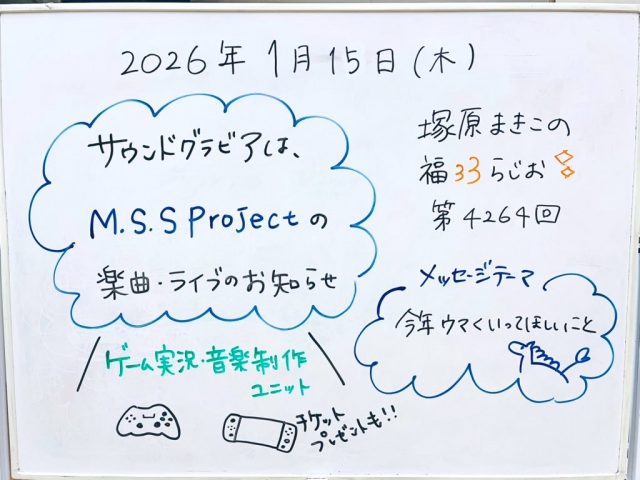 2026年1月15日(木)
サウンドグラビアは、
M.S.S Projectの
楽曲・ライブのお知らせ
ゲーム実況・音楽制作
ユニット
チケット
プレゼントも!!
塚原まきこの
福33らじお
第4264回
メッセージテーマ
今年ウマくいってほしいこと